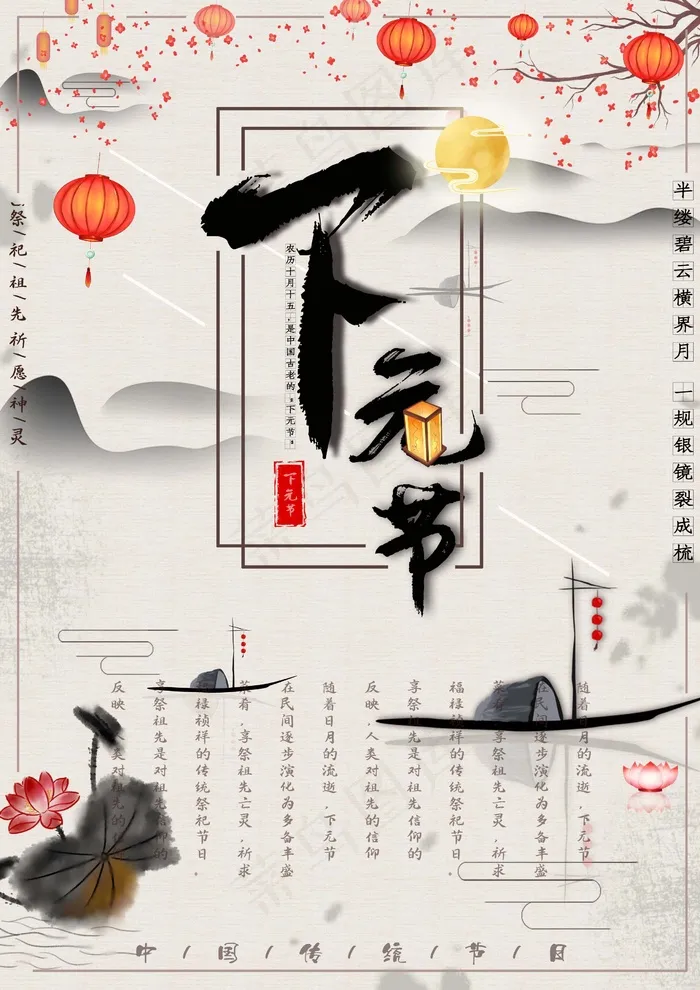 下元节
农历十月十五，是中国古老的“下元节”
下元节
祭/祀/祖/先 祈/愿/神/灵
半缕碧云横界月 一规银镜裂成梳
随着日月的流逝，下元节
在民间逐步演化为多备丰盛
菜肴，享祭祖先亡灵，祈求
福禄祯祥的传统祭祀节日。
享祭祖先是对祖先信仰的
反映，人类对祖先的信仰
随着日月的流逝，下元节
在民间逐步演化为多备丰盛
菜肴，享祭祖先亡灵，祈求
福禄祯祥的传统祭祀节日。
享祭祖先是对祖先信仰的
反映，人类对祖先的信
中/国/传/统/节/日